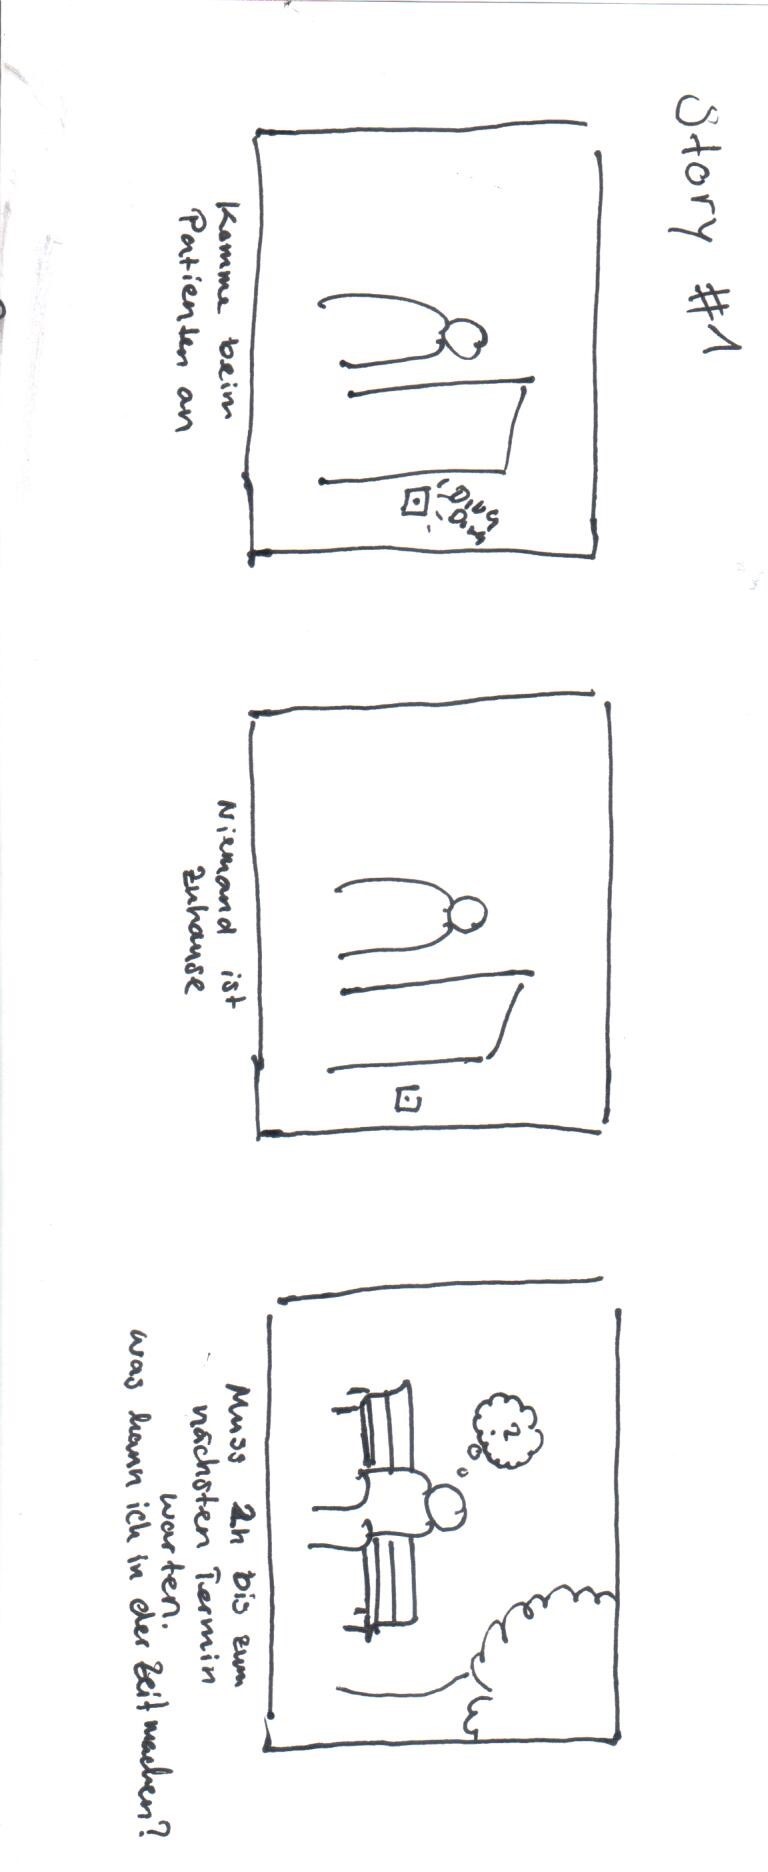 Story #1
DING
DONG
Komme beim
Patienten an
Niemand ist
Zuhause
?
Muss 2h bis zum
nächsten Termin
warten.
Was kann ich in der Zeit machen?